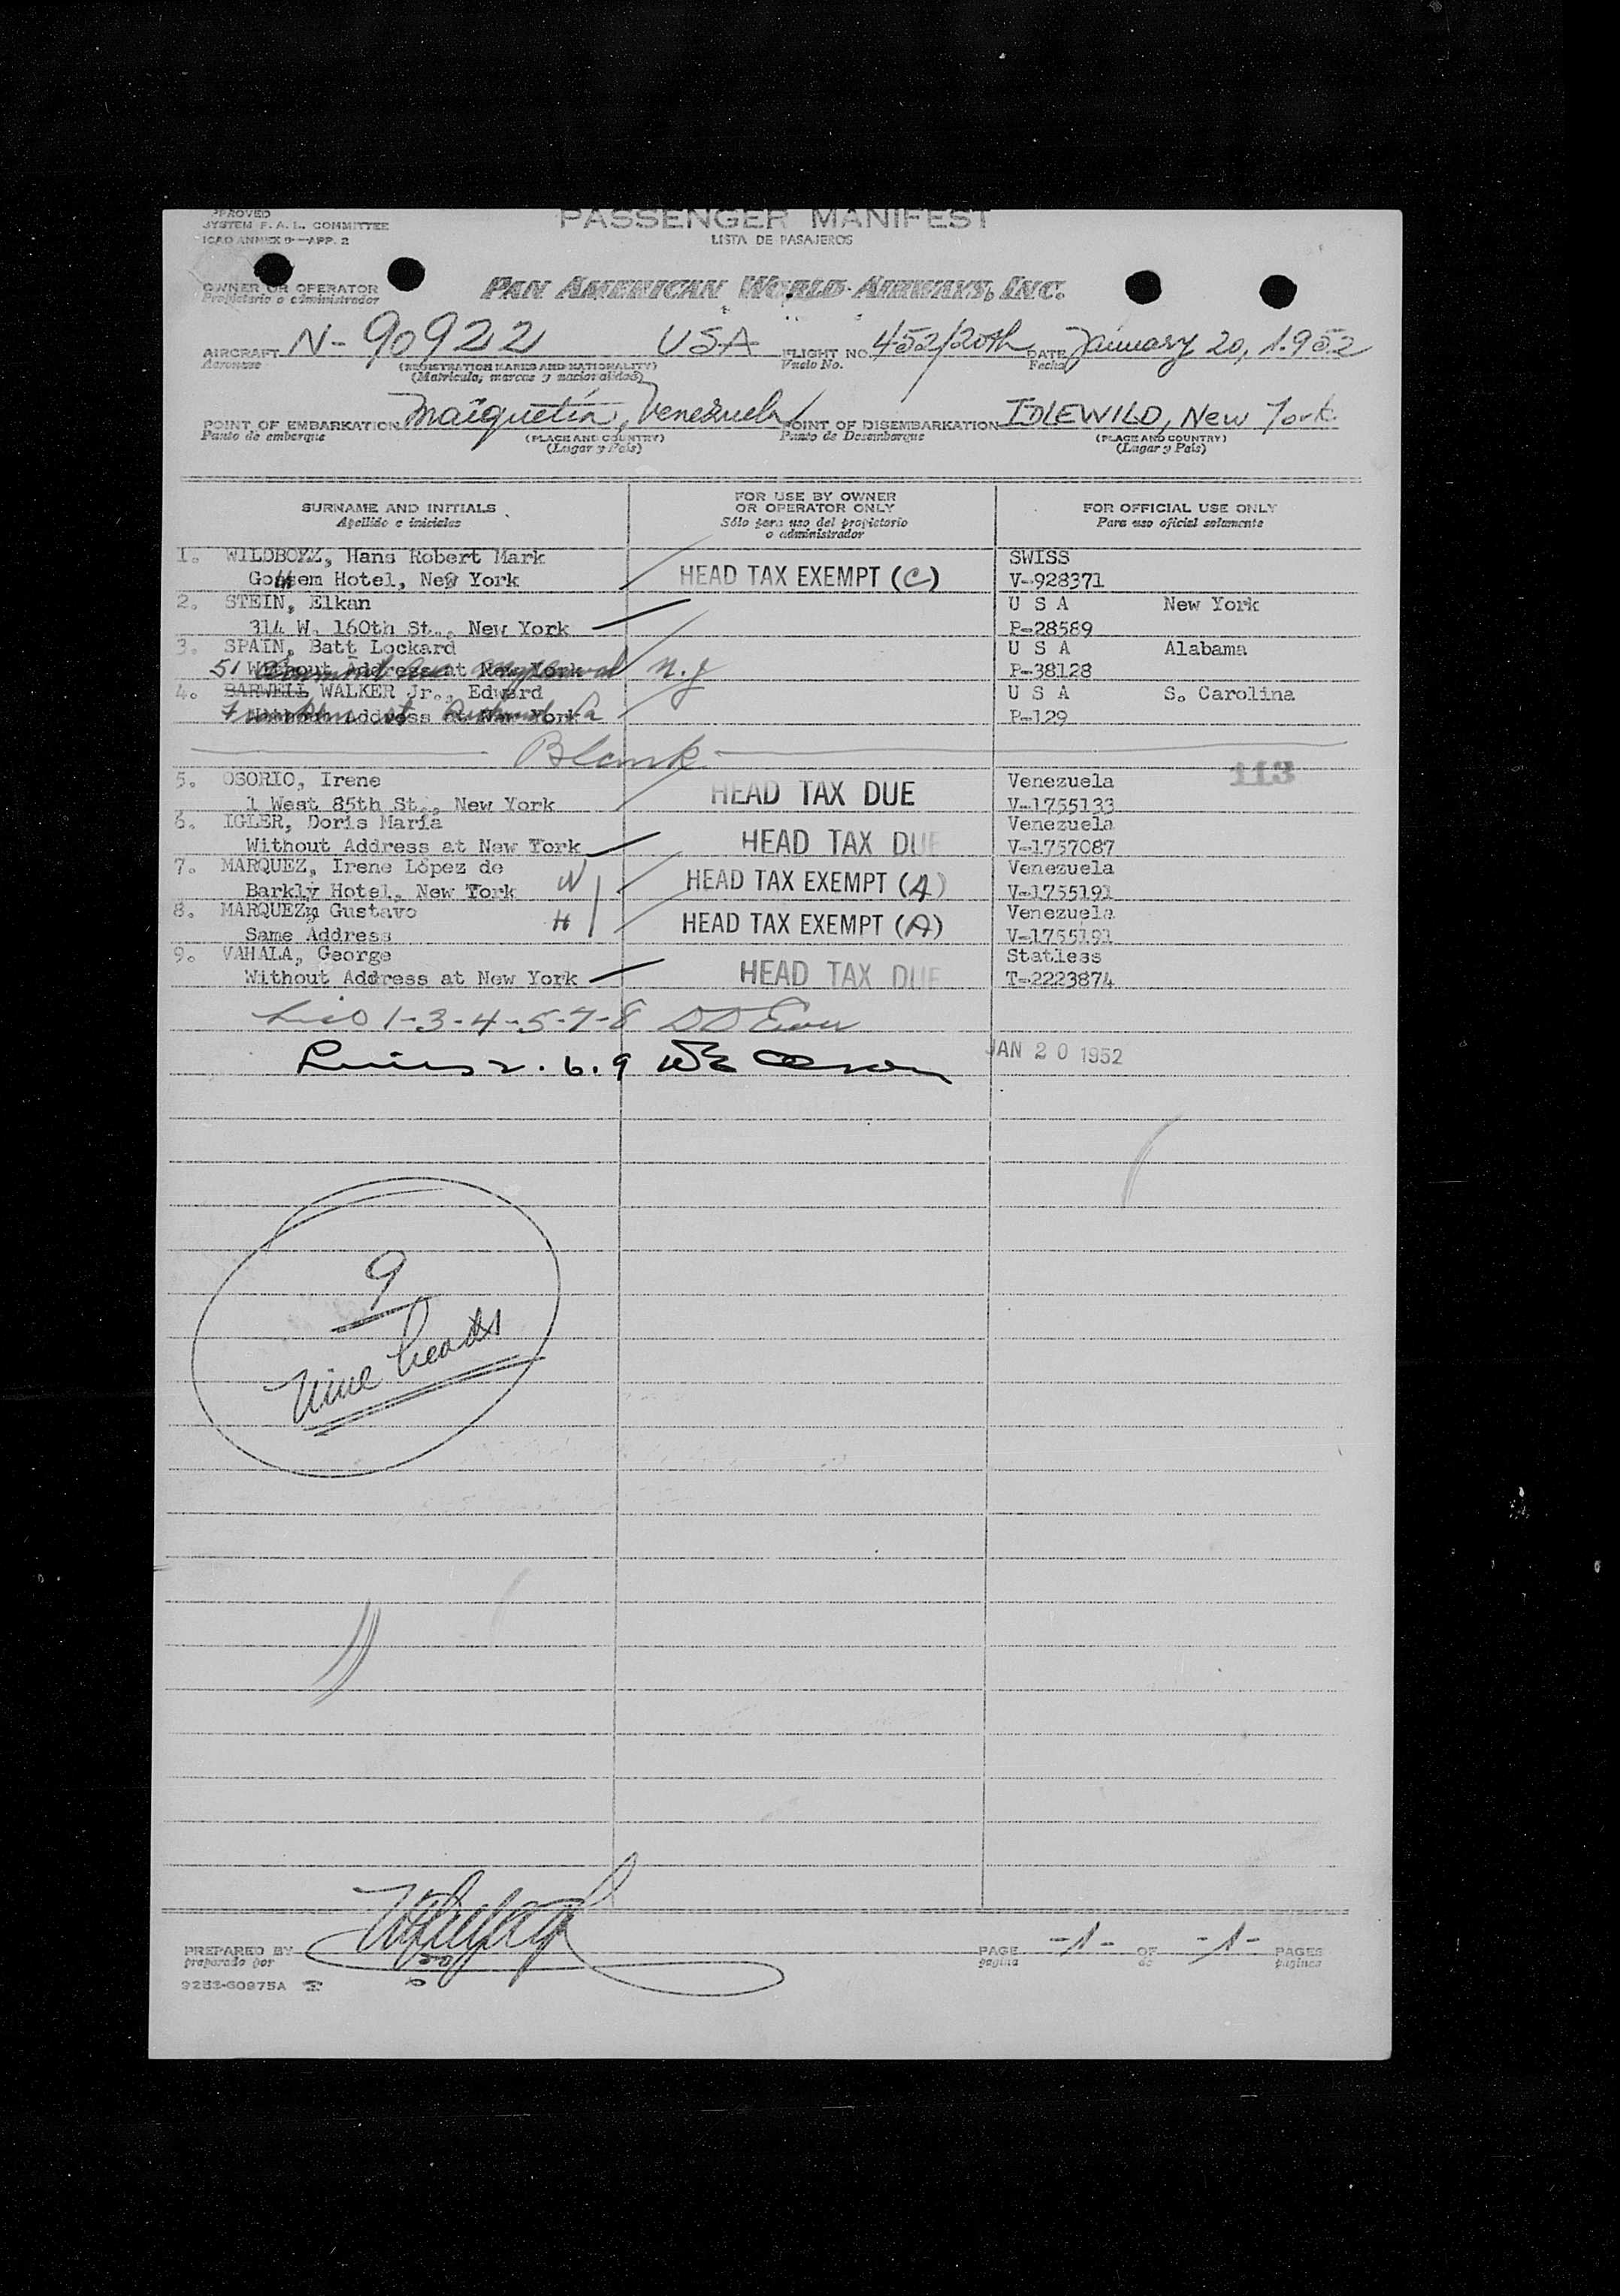 PASSENGER MANIFEST
SYSTEM F. A. L. COMMITTEE
ICAO ANNEX 9—APP. 2
LISTA DE PASAJEROS
OWNER OR OPERATOR
Propietario o administrador
PAN AMERICAN WORLD AIRWAYS, INC.
AIRCRAFT N-90922 USA FLIGHT NO. 452/20th DATE January 20, 1.952
Aeronave (REGISTRATION MARKS AND NATIONALITY) Vuelo No. Fecha
(Matricula, marcas y nacionalidad)
POINT OF EMBARKATION Maiquetía, Venezuela POINT OF DISEMBARKATION IDLEWILD, New York.
Punto de embarque (PLACE AND COUNTRY) Punto de Desembarque (PLACE AND COUNTRY)
(Lugar y País) (Lugar y País)
SURNAME AND INITIALS FOR USE BY OWNER OR OPERATOR ONLY FOR OFFICIAL USE ONLY
Apellido e iniciales Sólo para uso del propietario o administrador Para uso oficial solamente
1. Hans Robert Mark SWISS
Hotel, New York HEAD TAX EXEMPT (C) V-928371
2. STEIN, Elkan U S A New York
314 W. 160th St., New York P-28589
3. SPAIN, Batt Lockard U S A Alabama
51 Without Address at New York N.J P-38128
4. BARWELL WALKER Jr., Edward U S A S. Carolina
Address at New York P-129
Blank
5. OSORIO, Irene Venezuela 113
1 West 85th St., New York HEAD TAX DUE V-1755133
6. IGLER, Doris María Venezuela
Without Address at New York HEAD TAX DUE V-1757087
7. MARQUEZ, Irene López de Venezuela
Barkly Hotel, New York W HEAD TAX EXEMPT (A) V-1755191
8. MARQUEZ, Gustavo Venezuela
Same Address H HEAD TAX EXEMPT (A) V-1755191
9. VAHALA, George Statless
Without Address at New York HEAD TAX DUE T-2223874
1-3-4-5-7-8
2. 6. 9 JAN 20 1952
9
Nine heads
PREPARED BY PAGE -1- OF -1- PAGES
preparado por página de páginas
9253-G0975A